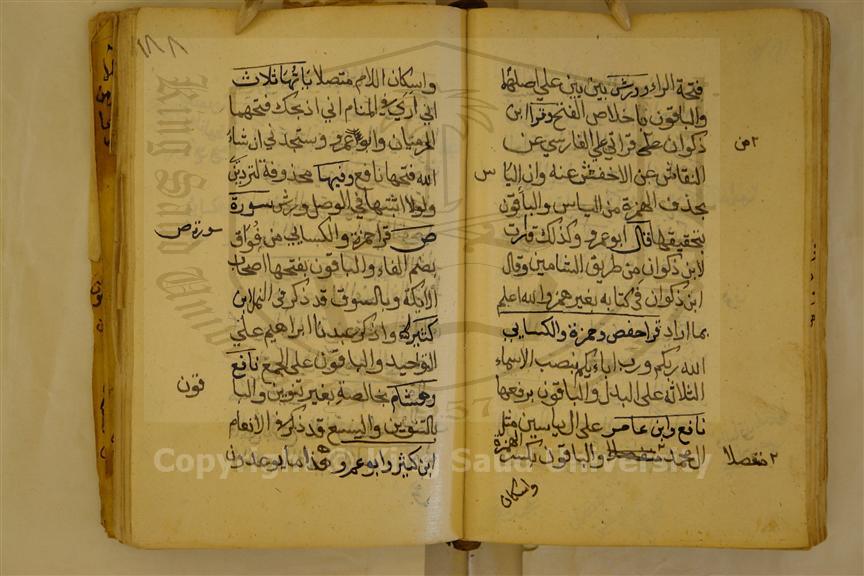 فتحة الراء وورش بين بين على اصله
والباقون باخلاص الفتح وقرا ابن
ذكوان من قراتي على الفارسي عن
٢ من
النقاش عن الاخفش عنه وان الياس
بحذف الهمزة من الياس والباقون
بتحقيقها قال ابو عمرو وكذلك قرات
لابن ذكوان من طريق الشامين وقال
ابن ذكوان في كتابه بغير همز والله اعلم
بما اراد قرا حفص وحمزة والكسايى
الله ربكم ورب اباىكم بنصب الاسماء
الثلاثة على البدل والباقون برفعها
نافع وابن عامر على ال ياسين مثل
ال محمد منفصلا والباقون بكسر الهمزة
٢ منفصلا
واسكان
١٨٨
واسكان اللام متصلا ياتها ثلاث
انى ارى في المنام انى اذبحك فتحهما
الحرميان وابو عمرو وستجدني ان شاء
الله فتحها نافع وفيها محذوفة لتردين
ولولا اثبتها في الوصل ورش سورة
ص قرا حمزة والكسايى من فواق
سورة ص
بضم الفاء والباقون بفتحها اصحاب
الايكة وبالسوق قد ذكر في النمل ابن
كثير واذكر عبدنا ابراهيم على
التوحيد والباقون على الجمع نافع
وهشام بخالصة بغير تنوين والبا
قون
بالتنوين واليسع قد ذكر في الانعام
ابن كثير وابو عمرو هذا ما يوعدون
Copyright © King Saud University
King Saud University
1957